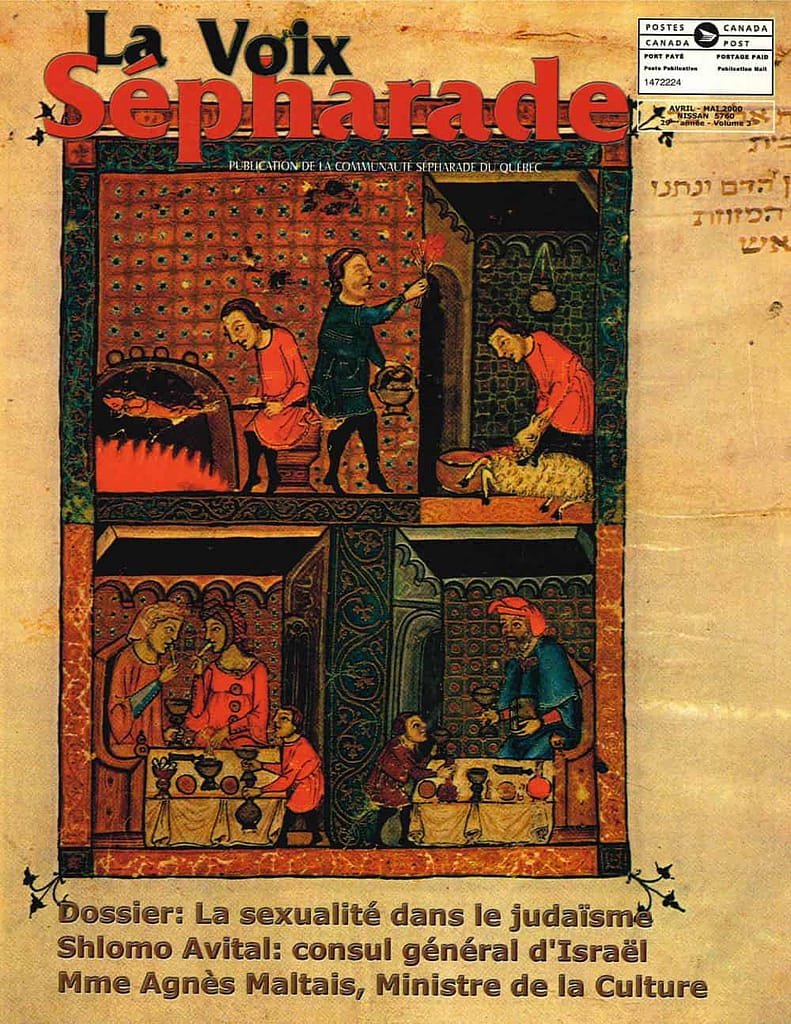 La Voix
Sépharade
PUBLICATION DE LA COMMUNAUTÉ SÉPHARADE DU QUÉBEC
POSTES CANADA
CANADA POST
PORT PAYÉ POSTAGE PAID
Poste Publication Publication Mail
1472224
AVRIL - MAI 2000
NISSAN 5760
29ème année - Volume 3
בית
הדם ונתנו
המזוזת
אש
Dossier: La sexualité dans le judaïsme
Shlomo Avital: consul général d'Israël
Mme Agnès Maltais, Ministre de la Culture